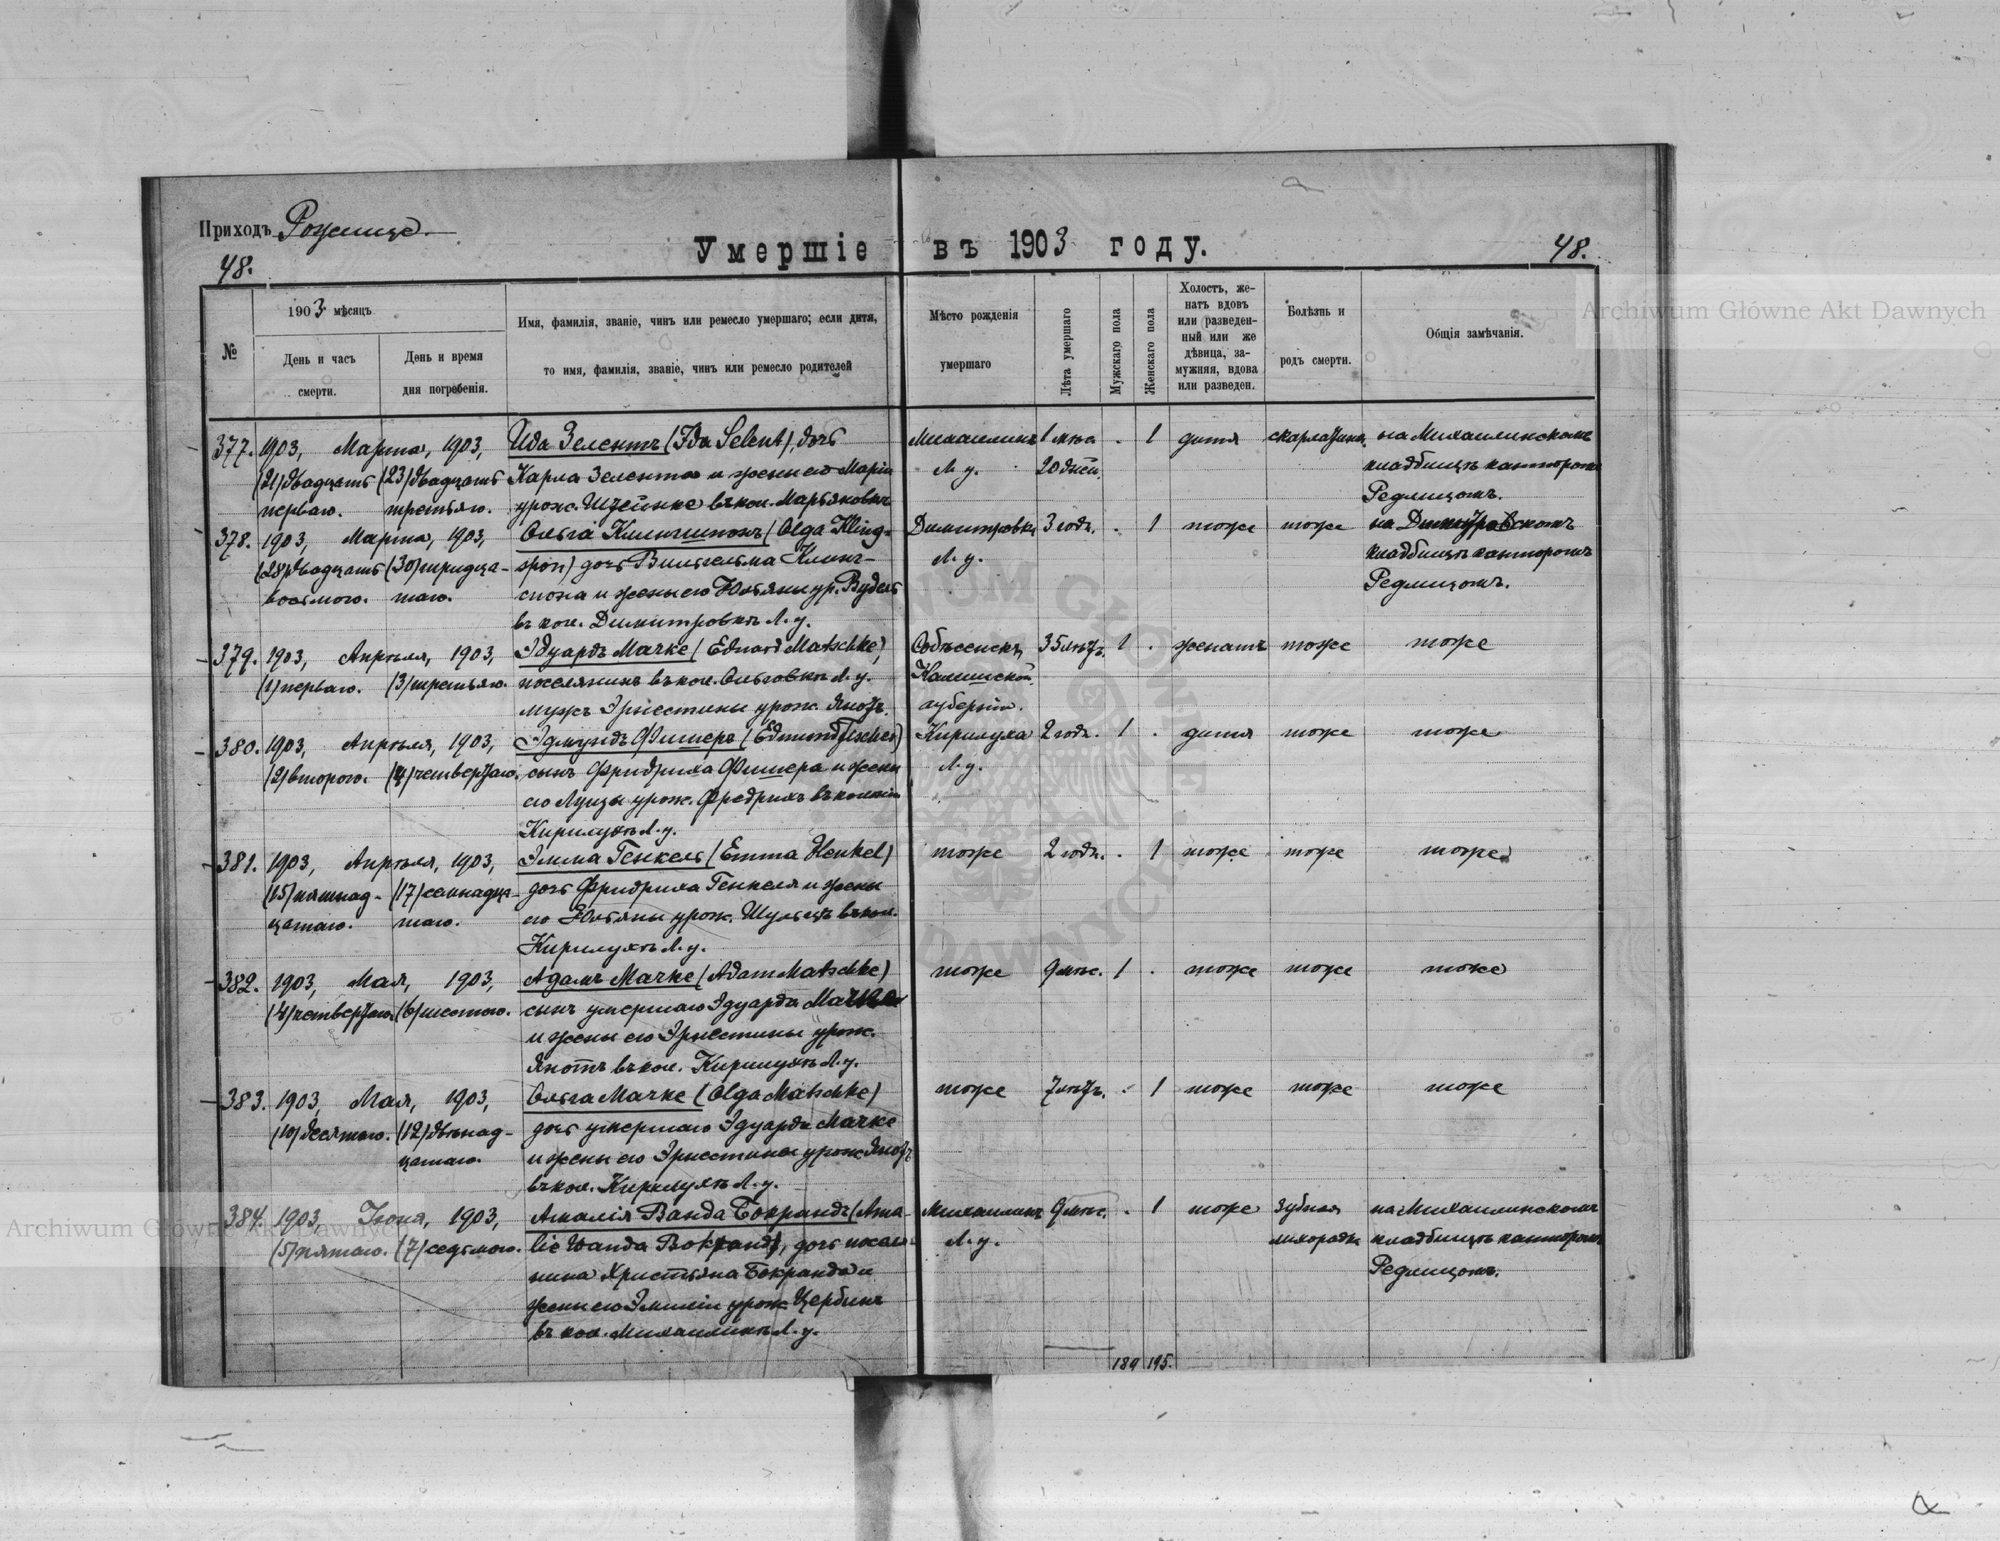 Приходъ Рожище
48.
Умершіе въ 1903 году.
48.
№
1903 мѣсяцъ
День и часъ смерти.
День и время дня погребенія.
Имя, фамилія, званіе, чинъ или ремесло умершаго; если дитя,
то имя, фамилія, званіе, чинъ или ремесло родителей
Мѣсто рожденія
умершаго
Лѣта умершаго
Мужскаго пола
Женскаго пола
Холостъ, же-
натъ вдовъ
или разведен-
ный или же
дѣвица, за-
мужняя, вдова
или разведен.
Болѣзнь и
родъ смерти.
Общія замѣчанія.
377. 1903, Марта, 1903, Ида Зелентъ (Ida Selent), дочь Михаилинъ 1 мѣс. . 1 дитя скарлатина. на Михаилинскомъ
(21) двадцать (23) двадцать Карла Зелента и жены его Маріи Л. у. 20 дней. кладбищѣ канторомъ
перваго. третьяго. урож. въ кол. Редлицомъ.
378. 1903, Марта, 1903, Ольга Клингспонъ (Olga Kling- Димитровка 3 года. . 1 тоже тоже на Димитровскомъ
(28) двадцать (30) тридца- spon) дочь Вильгельма Клинг- Л. у. кладбищѣ канторомъ
восьмого. таго. спона и жены его Юльяны ур. Редлицомъ.
въ кол. Димитровкѣ Л. у.
379. 1903, Апрѣля, 1903, Эдуардъ Мачке (Eduard Matschke) 35 лѣтъ. 1 . женатъ тоже тоже
(1) перваго. (3) третьяго. поселянинъ въ кол. Ольговкѣ Л. у. Калишской
мужъ Эрнестины урож. Янотъ. губерніи.
380. 1903, Апрѣля, 1903, Эдмундъ Фишеръ (Edmund Fischer) Кирилуха 2 года. 1 . дитя тоже тоже
(2) второго. (4) четвертаго. сынъ Фридриха Фишера и жены Л. у.
его Луизы урож. Фредрихъ въ колоніи
Кирилухѣ Л. у.
381. 1903, Апрѣля, 1903, Эмма Генкель (Emma Henkel) тоже 2 года. . 1 тоже тоже тоже
(15) пятнад- (17) семнадца- дочь Фридриха Генкеля и жены
цатаго. таго. его Юльяны урож. Шульцъ въ кол.
Кирилухѣ Л. у.
382. 1903, Мая, 1903, Адамъ Мачке (Adam Matschke) тоже 9 мѣс. 1 . тоже тоже тоже
(4) четвертаго (6) шестого. сынъ умершаго Эдуарда Мачке
и жены его Эрнестины урож.
Янотъ въ кол. Кирилухѣ Л. у.
383. 1903, Мая, 1903, Ольга Мачке (Olga Matschke) тоже 7 лѣтъ. . 1 тоже тоже тоже
(10) десятаго. (12) двѣнад- дочь умершаго Эдуарда Мачке
цатаго. и жены его Эрнестины урож. Янотъ
въ кол. Кирилухѣ Л. у.
384. 1903, Іюня, 1903, Амалія Ванда Бокрандъ (Ama- Михаилинъ 9 мѣс. . 1 тоже Зубная на Михаилинскомъ
(5) пятаго. (7) седьмого. lie Wanda Bokrand), дочь поселя- Л. у. лихорадка кладбищѣ канторомъ
нина Христьяна Бокранда и Редлицомъ.
жены его Эмиліи урож. Цербинъ
въ кол. Михаилинѣ Л. у.
189 195.
Archiwum Główne Akt Dawnych
Archiwum Główne Akt Dawnych